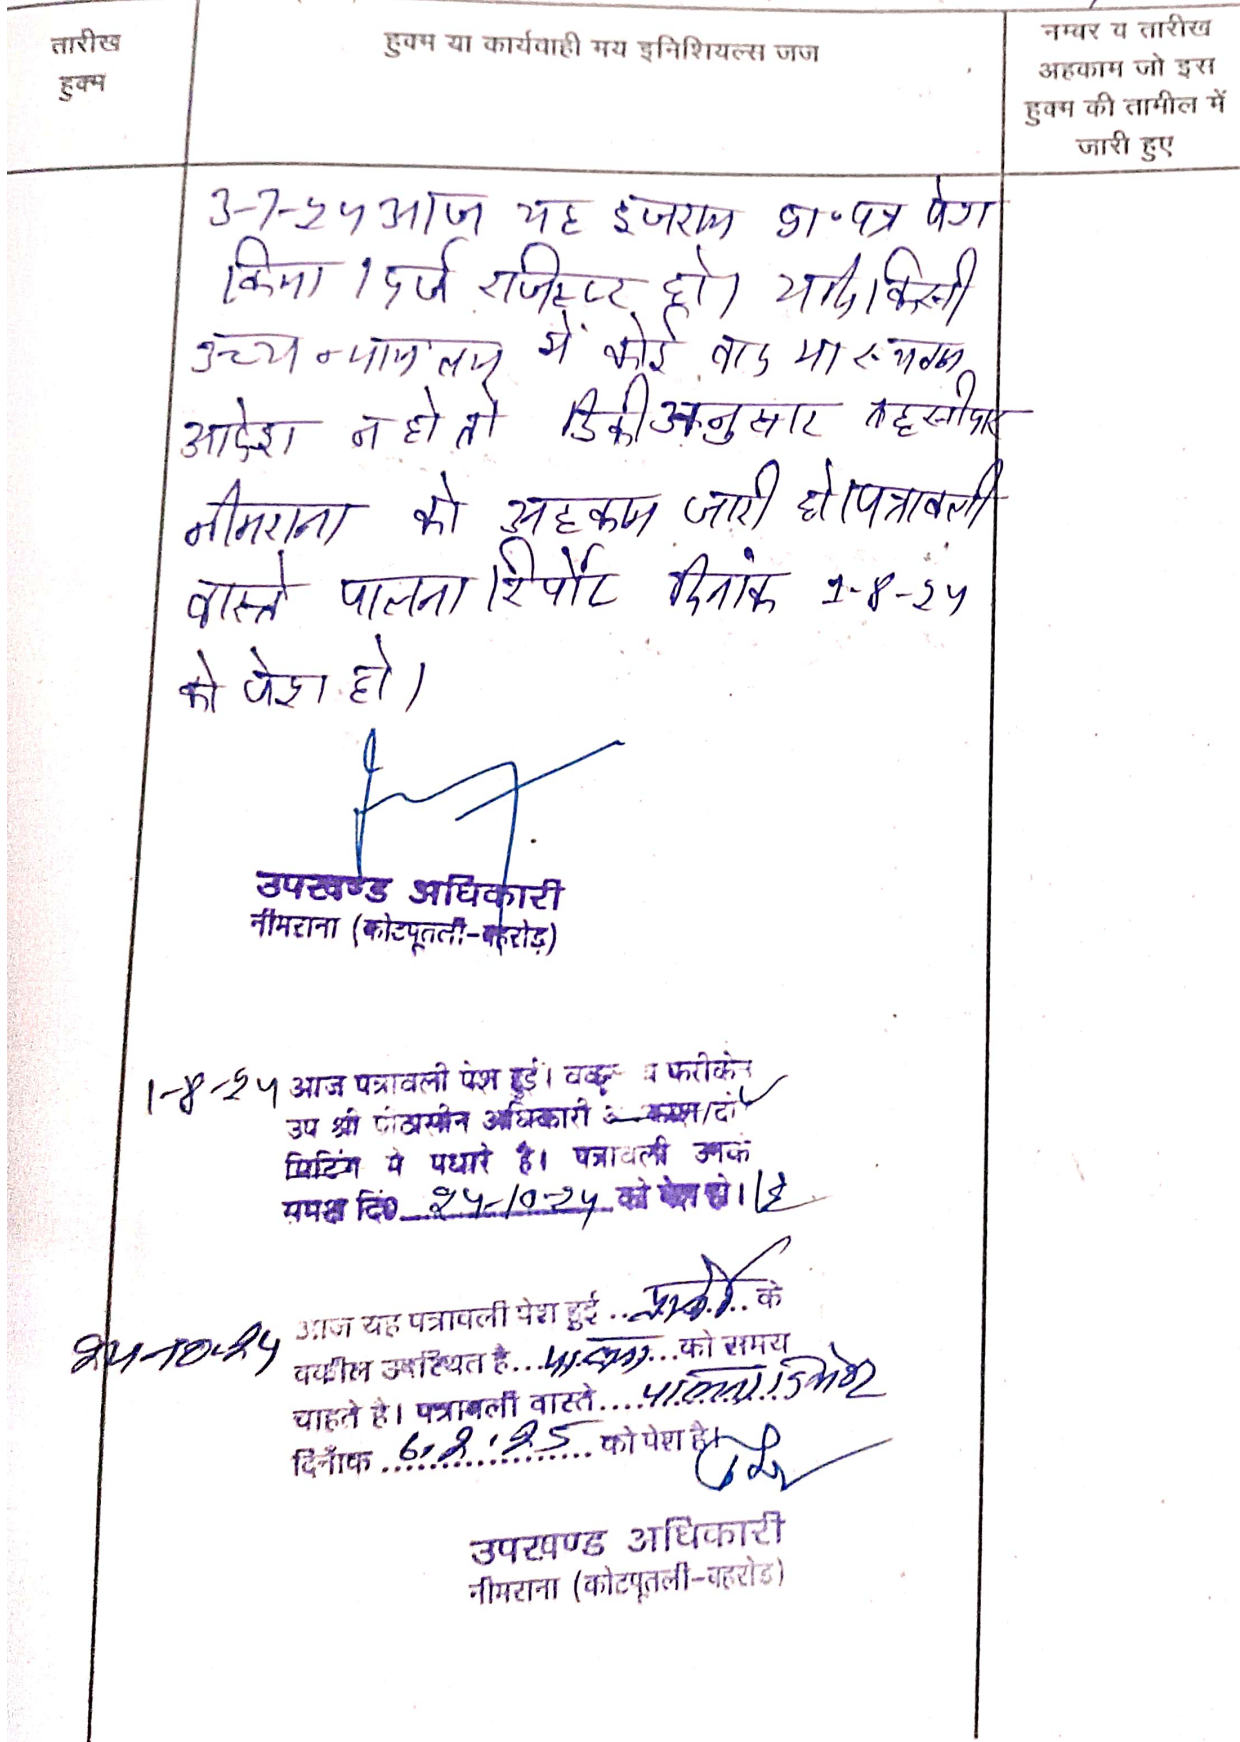 तारीख
हुक्म
हुक्म या कार्यवाही मय इनिशियल्स जज
नम्बर व तारीख
अहकाम जो इस
हुक्म की तामील में
जारी हुए
3-7-24 आज यह इजराय प्रा॰पत्र पेश
किया। दर्ज रजिस्टर हो। यदि किसी
उच्च न्यायालय में कोई वाद या स्थगन
आदेश न हो तो डिक्री अनुसार तहसीलदार
नीमराना को अहकाम जारी हो। पत्रावली
वास्ते पालना रिर्पोट दिनांक 1-8-24
को पेश हो।
उपखण्ड अधिकारी
नीमराना (कोटपूतली-बहरोड़)
1-8-24 आज पत्रावली पेश हुई। फरीकेन
उप श्री पीठासीन अधिकारी
मिटिंग मे पधारे है। पत्रावली उनके
समक्ष दि० 24-10-24 को पेश हो।
24-10-24 आज यह पत्रावली पेश हुई .. प्रार्थी .. के
वकील उपस्थित है... पालना ...को समय
चाहते है। पत्रावली वास्ते.... पालना रिपोर्ट
दिनाँक 6.2.25 को पेश है।
उपखण्ड अधिकारी
नीमराना (कोटपूतली-बहरोड)